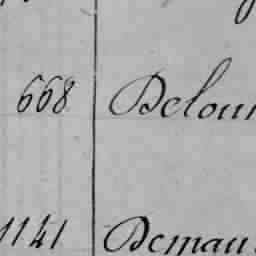 668 Delour
1141 Demau